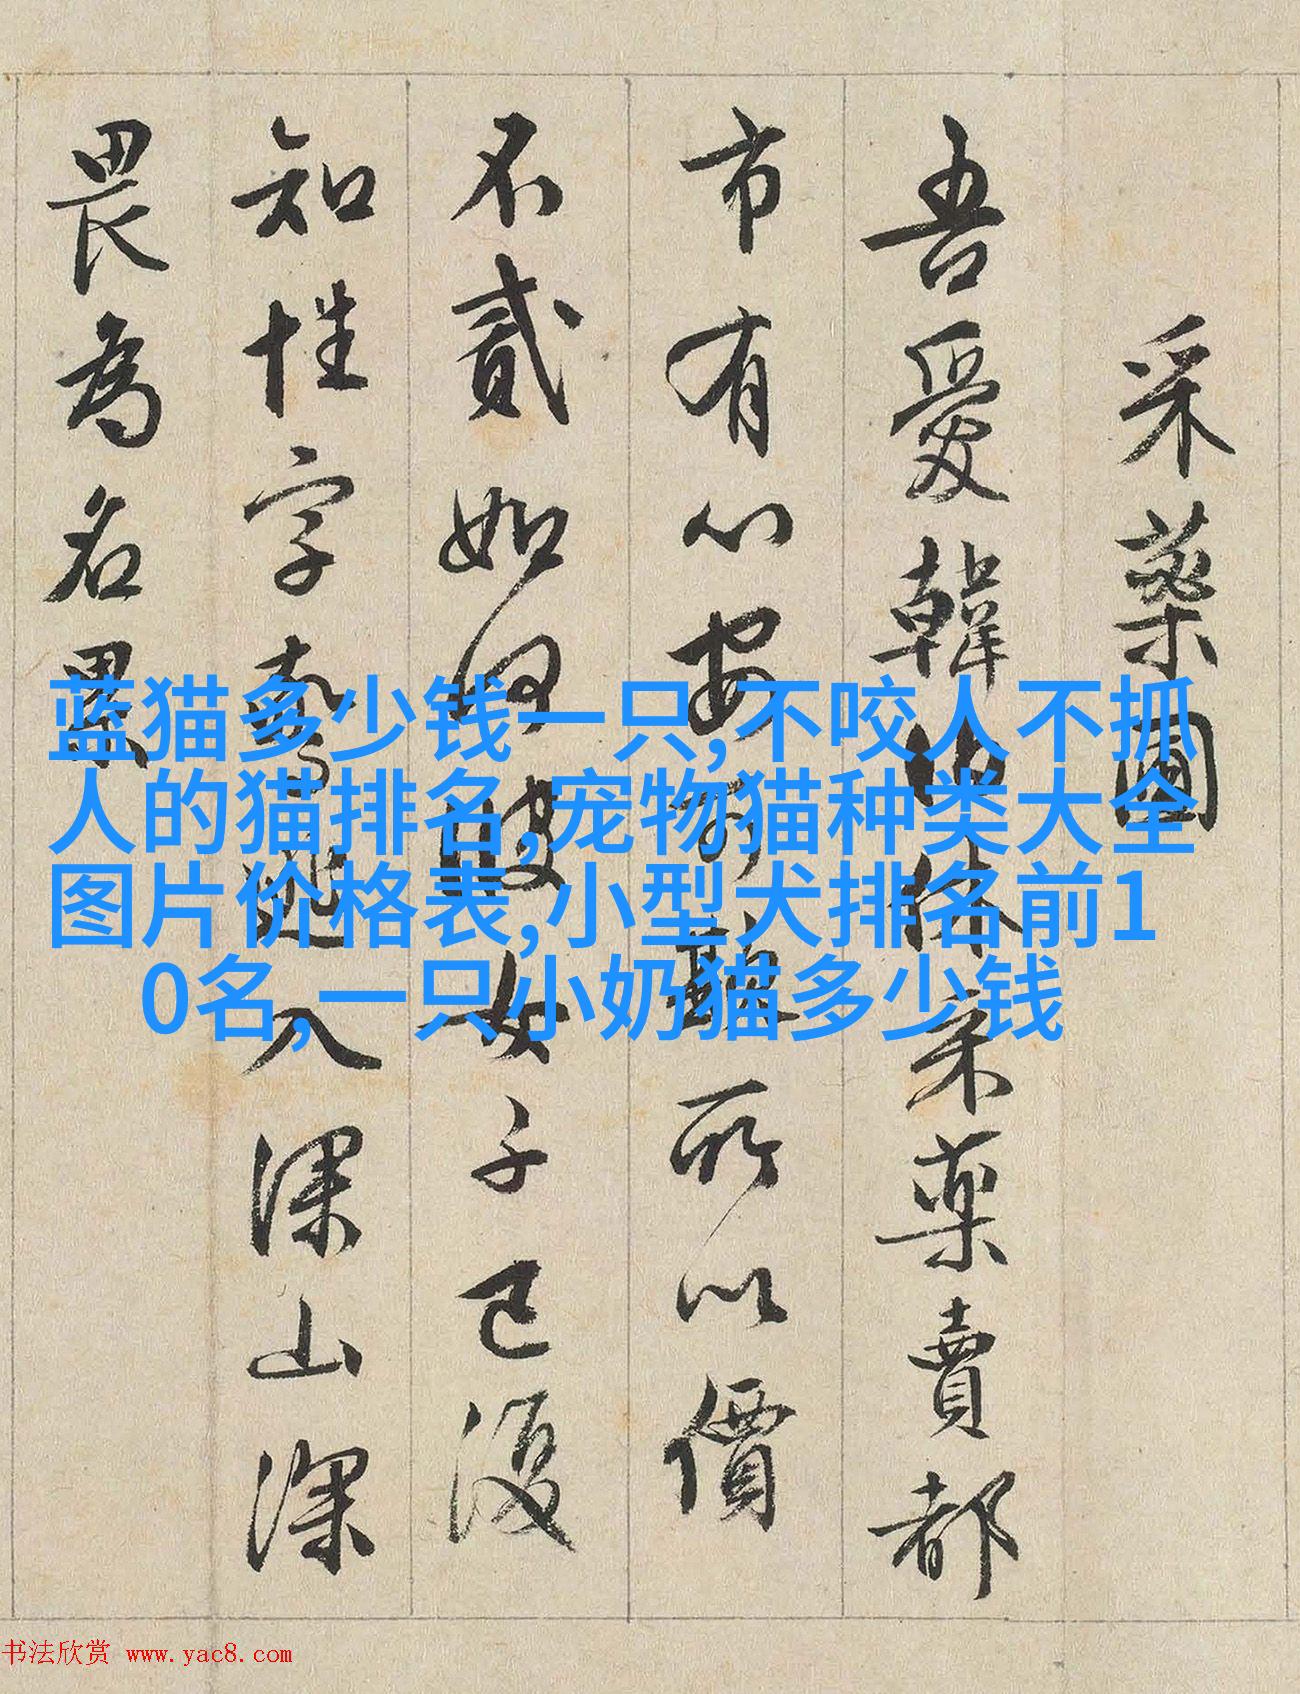 采藥圖
吾愛韓伯休采藥賣都
市有心安可欺所以價
不貳如何彼女子已復
知性字驚逃入深山深
畏為名累
蓝猫多少钱一只,不咬人不抓
人的猫排名,宠物猫种类大全
图片价格表,小型犬排名前1
0名,一只小奶猫多少钱
书法欣赏 www.yac8.com